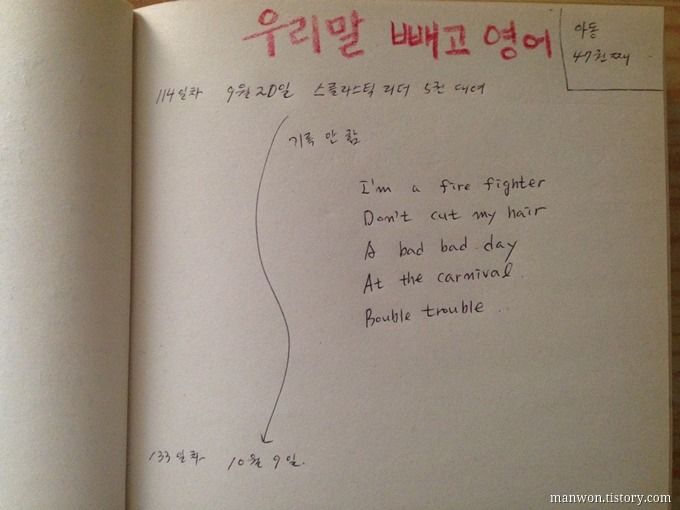 우리말 빼고 영어
아동
47권째
114일차 9월 20일 스콜라스틱 리더 5권 대여
기록 안 함
I'm a fire fighter
Don't cut my hair
A bad bad day
At the carnival.
Bouble trouble..
133일차 10월 9일.
manwon.tistory.com